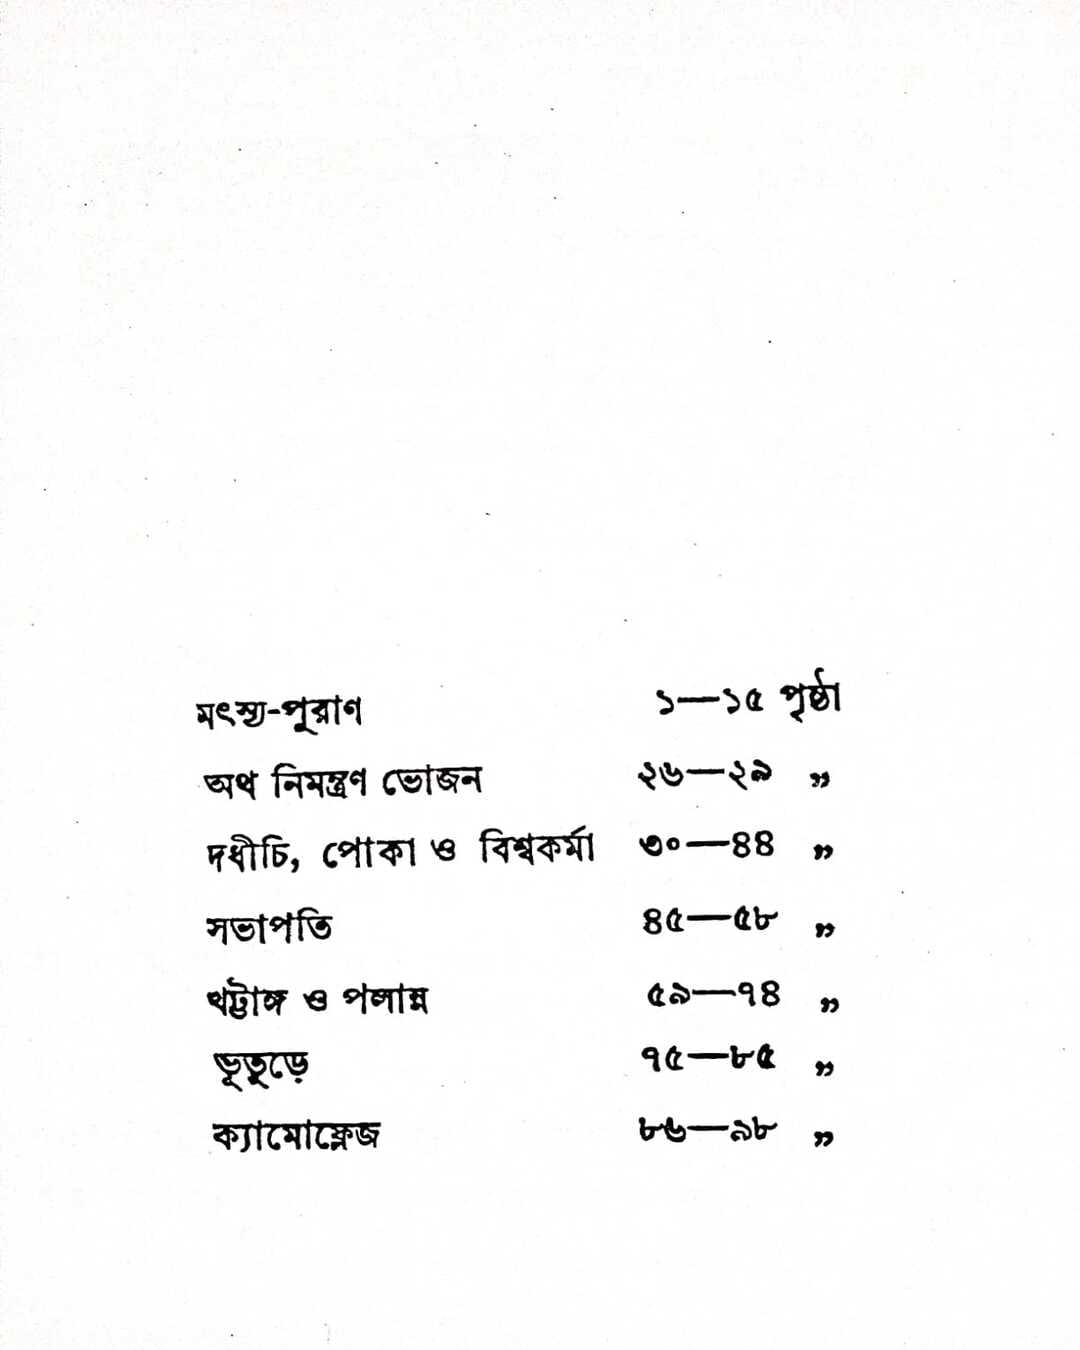 মৎস্য-পুরাণ ১—১৫ পৃষ্ঠা
অথ নিমন্ত্রণ ভোজন ২৬—২৯ „
দধীচি, পোকা ও বিশ্বকর্মা ৩০—৪৪ „
সভাপতি ৪৫—৫৮ „
খট্টাঙ্গ ও পলান্ন ৫৯—৭৪ „
ভূতুড়ে ৭৫—৮৫ „
ক্যামোফ্লেজ ৮৬—৯৮ „